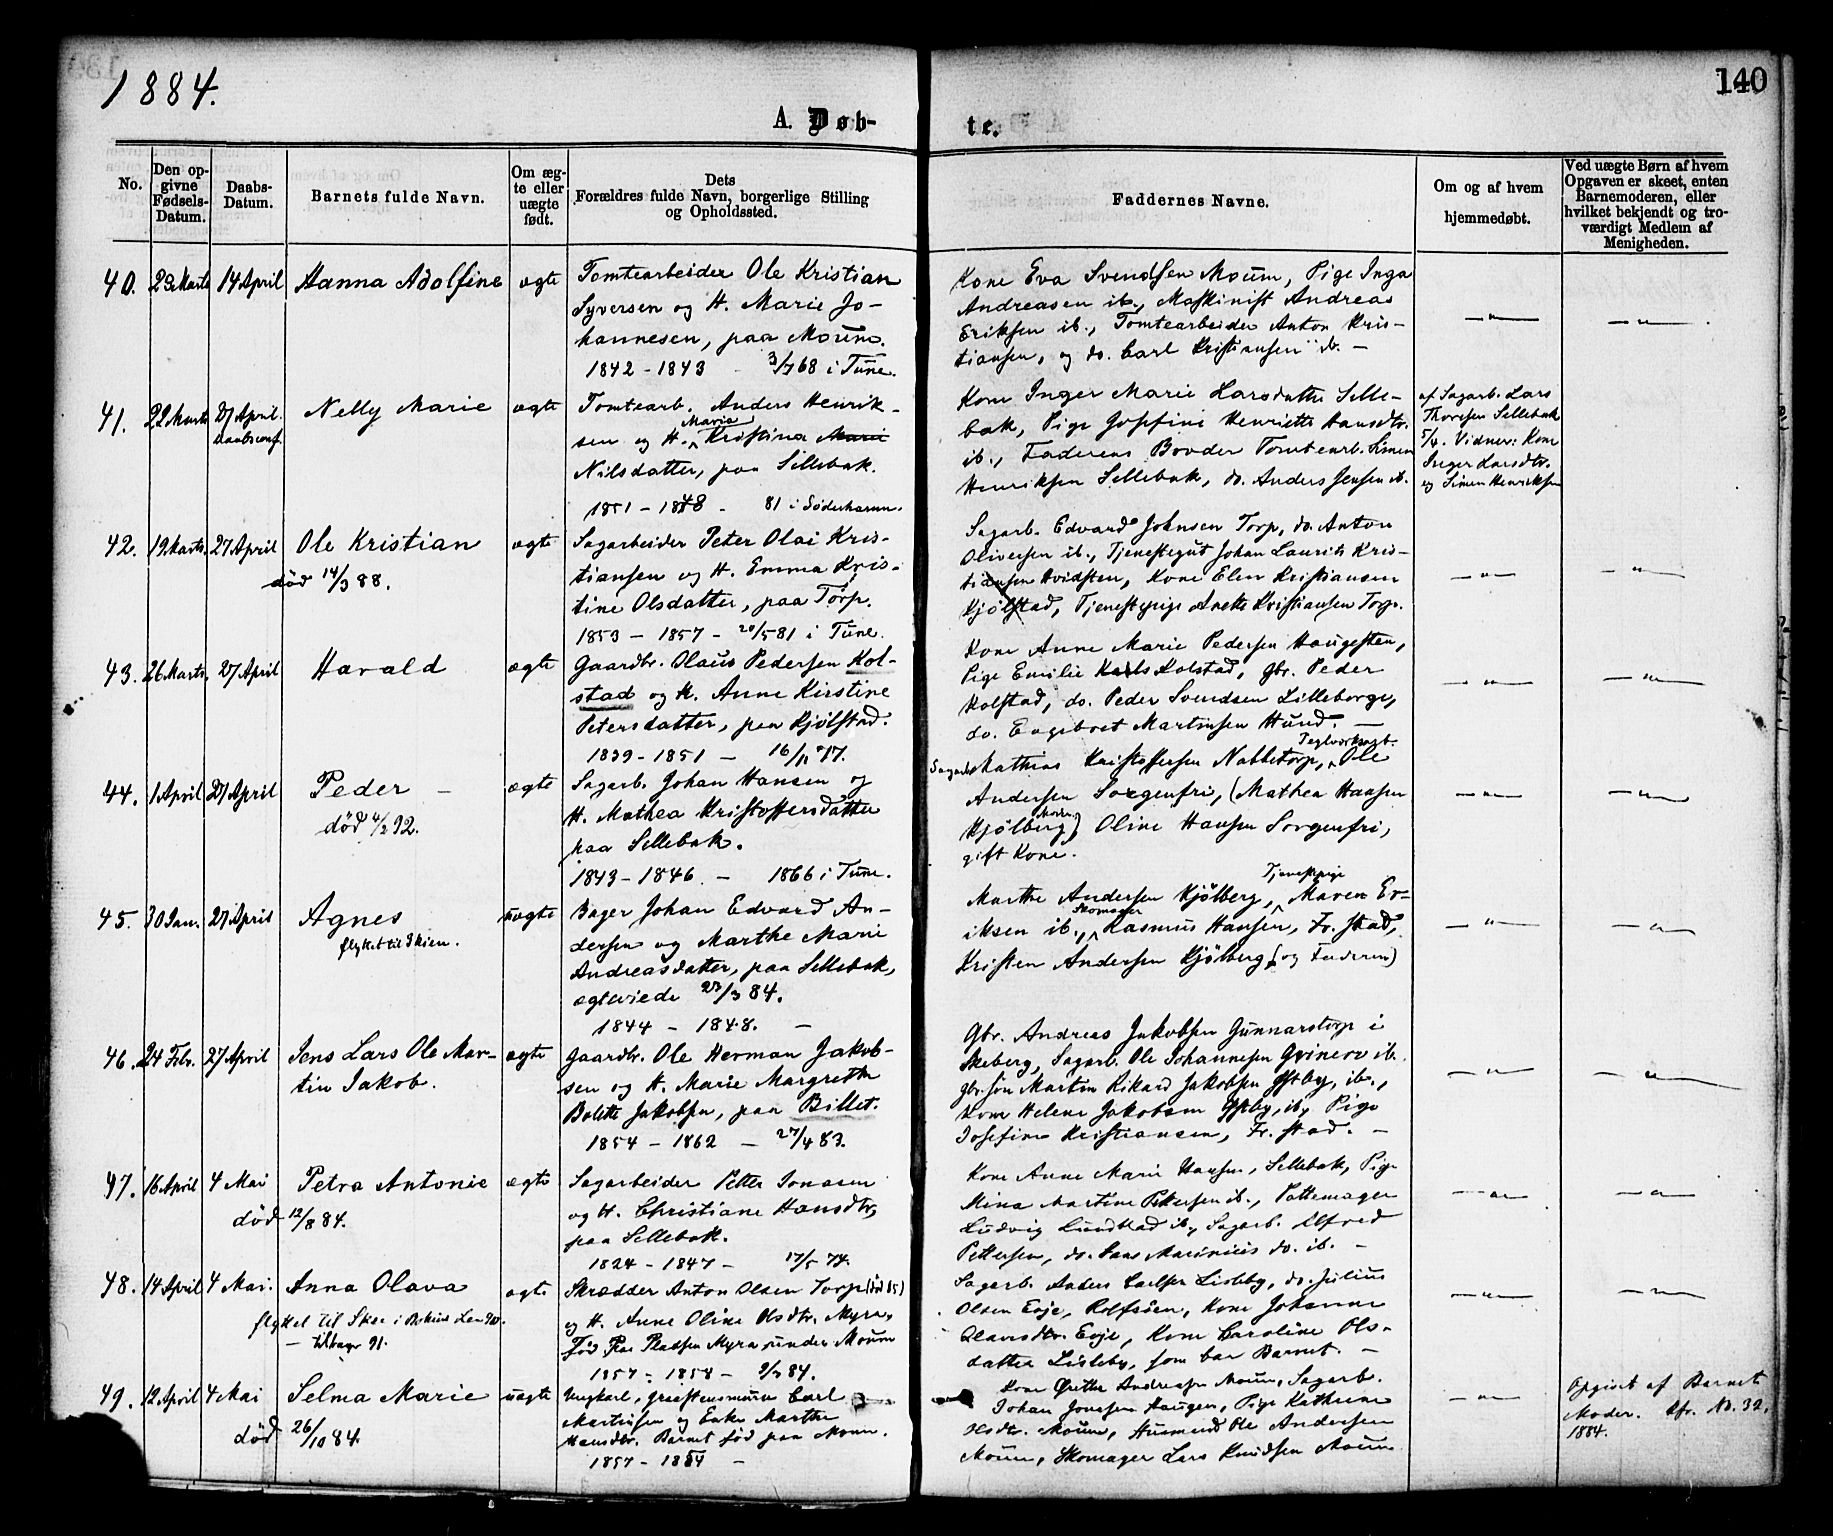 1884.
140
A. Døb-
te.
No.
Den op-
givne
Fødsels-
Datum.
Daabs-
Datum.
Barnets fulde Navn.
Om æg-
te eller
uægte
født.
Dets
Forældres fulde Navn, borgerlige Stilling
og Opholdssted.
Faddernes Navne.
Om og af hvem
hjemmedøbt.
Ved uægte Børn af hvem
Opgaven er skeet, enten
Barnemoderen, eller
hvilket bekjendt og tro-
værdigt Medlem af
Menigheden.
40. 23 Marts 14 April Hanna Adolfine ægte
Tomtearbeider Ole Kristian
Syversen og H. Marie Jo-
hannesen, paa Moum.
1842 - 1843 - 3/7 68 i Tune.
Kone Eva Svendsen Moum, Pige Inga
Andreasen ib., Maskinist Andreas
Eriksen ib., Tomtearbeider Anton Kris-
tiansen, og do. Carl Kristiansen ib. -
41. 22 Marts 27 April. Nelly Marie ægte
daabsconf.
Tomtearb. Anders Henrik-
sen og H. Maria Kristina Marie
Nilsdatter, paa Sellebak.
1851 - 1848 - 81 i Söderhamn.
Kone Inger Marie Larsdatter Selle-
bak, Pige Josefine Henriette Hansdtr.
ib., Faderens Broder Tomtearb. Simen
Henriksen Sellebak, do. Anders Jensen ib.
af Sagarb. Lars
Thoresen Sellebak
5/4. Vidner: Kone
Inger Larsdtr.
og Simen Henriksen
42. 19 Marts 27 April Ole Kristian ægte
død 14/3 88.
Sagarbeider Peter Olai Kris-
tiansen og H. Emma Kris-
tine Olsdatter, paa Torp.
1853 - 1857 - 20/5 81 i Tune.
Sagarb. Edvard Johnsen Torp, do. Anton
Oliversen ib., Tjenestegut Johan Laurits Kris-
tiansen Hvidsten, Kone Elen Kristiansen
Kjölstad, Tjenestepige Anette Kristiansen Torp.
43. 26 Marts, 27 April Harald ægte
Gaardbr. Olaus Pedersen Kol-
stad og H. Anne Kirstine
Petersdatter, paa Kjölstad.
1839 - 1851 - 16/11 77.
Kone Anne Marie Pedersen Haugesten,
Pige Emilie Karls Kolstad, Gbr. Peder
Kolstad, do. Peder Svendsen Lilleborge,
do. Engebret Martinsen Hund. -
44. 1 April 27 April Peder - ægte
død 4/2 92.
Sagarb. Johan Hansen og
H. Mathea Kristoffersdatter
paa Sellebak.
1843 - 1846 - 1866 i Tune.
Sagarb. Mathias Kristoffersen Nabbetorp, Teglværksarb. Ole
Andersen Sorgenfri, (Mathea Hansen
Kjölberg) Oline Hansen Sorgenfri,
gift Kone.
45. 30 Jan. 27 April Agnes uægte
flyttet til Skien.
Bager Johan Edvard An-
dersen og Marthe Marie
Andreasdatter, paa Sellebak,
ægteviede 23/3 84.
1844 - 1848. -
Marthe Andersen Kjölberg, Tjenestepige Maren Er-
iksen ib., Skomager Rasmus Hansen, Fr.stad,
Kristen Andersen Kjölberg (og Faderen)
46. 24 Febr. 27 April Jens Lars Ole Mar- ægte
tin Jakob.
Gaardbr. Ole Herman Jakob-
sen og H. Marie Margrethe
Bolette Jakobsen, paa Billet.
1854 - 1862 - 27/4 83.
Gbr. Andreas Jakobsen Gunnarstorp i
Skeberg, Sagarb. Ole Johannesen Grinerv ib.
Gbr.sön Martin Rikard Jakobsen Ystby, ib.,
Kone Helene Jakobsen Ystby, ib, Pige
Josefine Kristiansen, Fr.stad. -
47. 16 April 4 Mai Petra Antonie ægte
død 12/8 84.
Sagarbeider Petter Jonasen
og H. Christiane Hansdtr,
paa Sellebak.
1824 - 1847 - 17/5 74.
Kone Anne Marie Hansen, Sellebak, Pige
Mina Martine Pettersen ib., Pottemager
Ludvig Lundblad ib, Sagarb. Alfred
Pettersen, do. Hans Marinius do. ib. -
48. 14 April 4 Mai. Anna Olava ægte
flyttet til Skee i Bohus Len 90.
- tilbage 91.
Skrædder Anton Olsen Torp (død 85)
og H. Anne Oline Olsdtr. Myra,
Fød Paa Pladsen Myra under Moum
1857 - 1858 - 9/3 84.
Sagarb. Anders Carlsen Lisleby, do. Julius
Olsen Evje, Rolfsöen, Kone Johanne
Olavsdtr. Evje, Kone Caroline Ols-
datter Lisleby, som bar Barnet. -
49. 12 April 4 Mai Selma Marie uægte
død 26/10 84.
Ungkarl, Carl
Martinsen og Enke Marthe
Hansdtr. Barnet fød paa Moum.
1857 - 1851 -
Kone Grethe Andreasen Moum, Sagarb.
Johan Jonsen Haugen, Pige Kathrine
Olsdtr. Moum, Husmand Ole Andersen
Moum, Skomager Lars Knudsen Moum
Opgivet af Barnets
Moder. Cfr. No. 32.
1884.